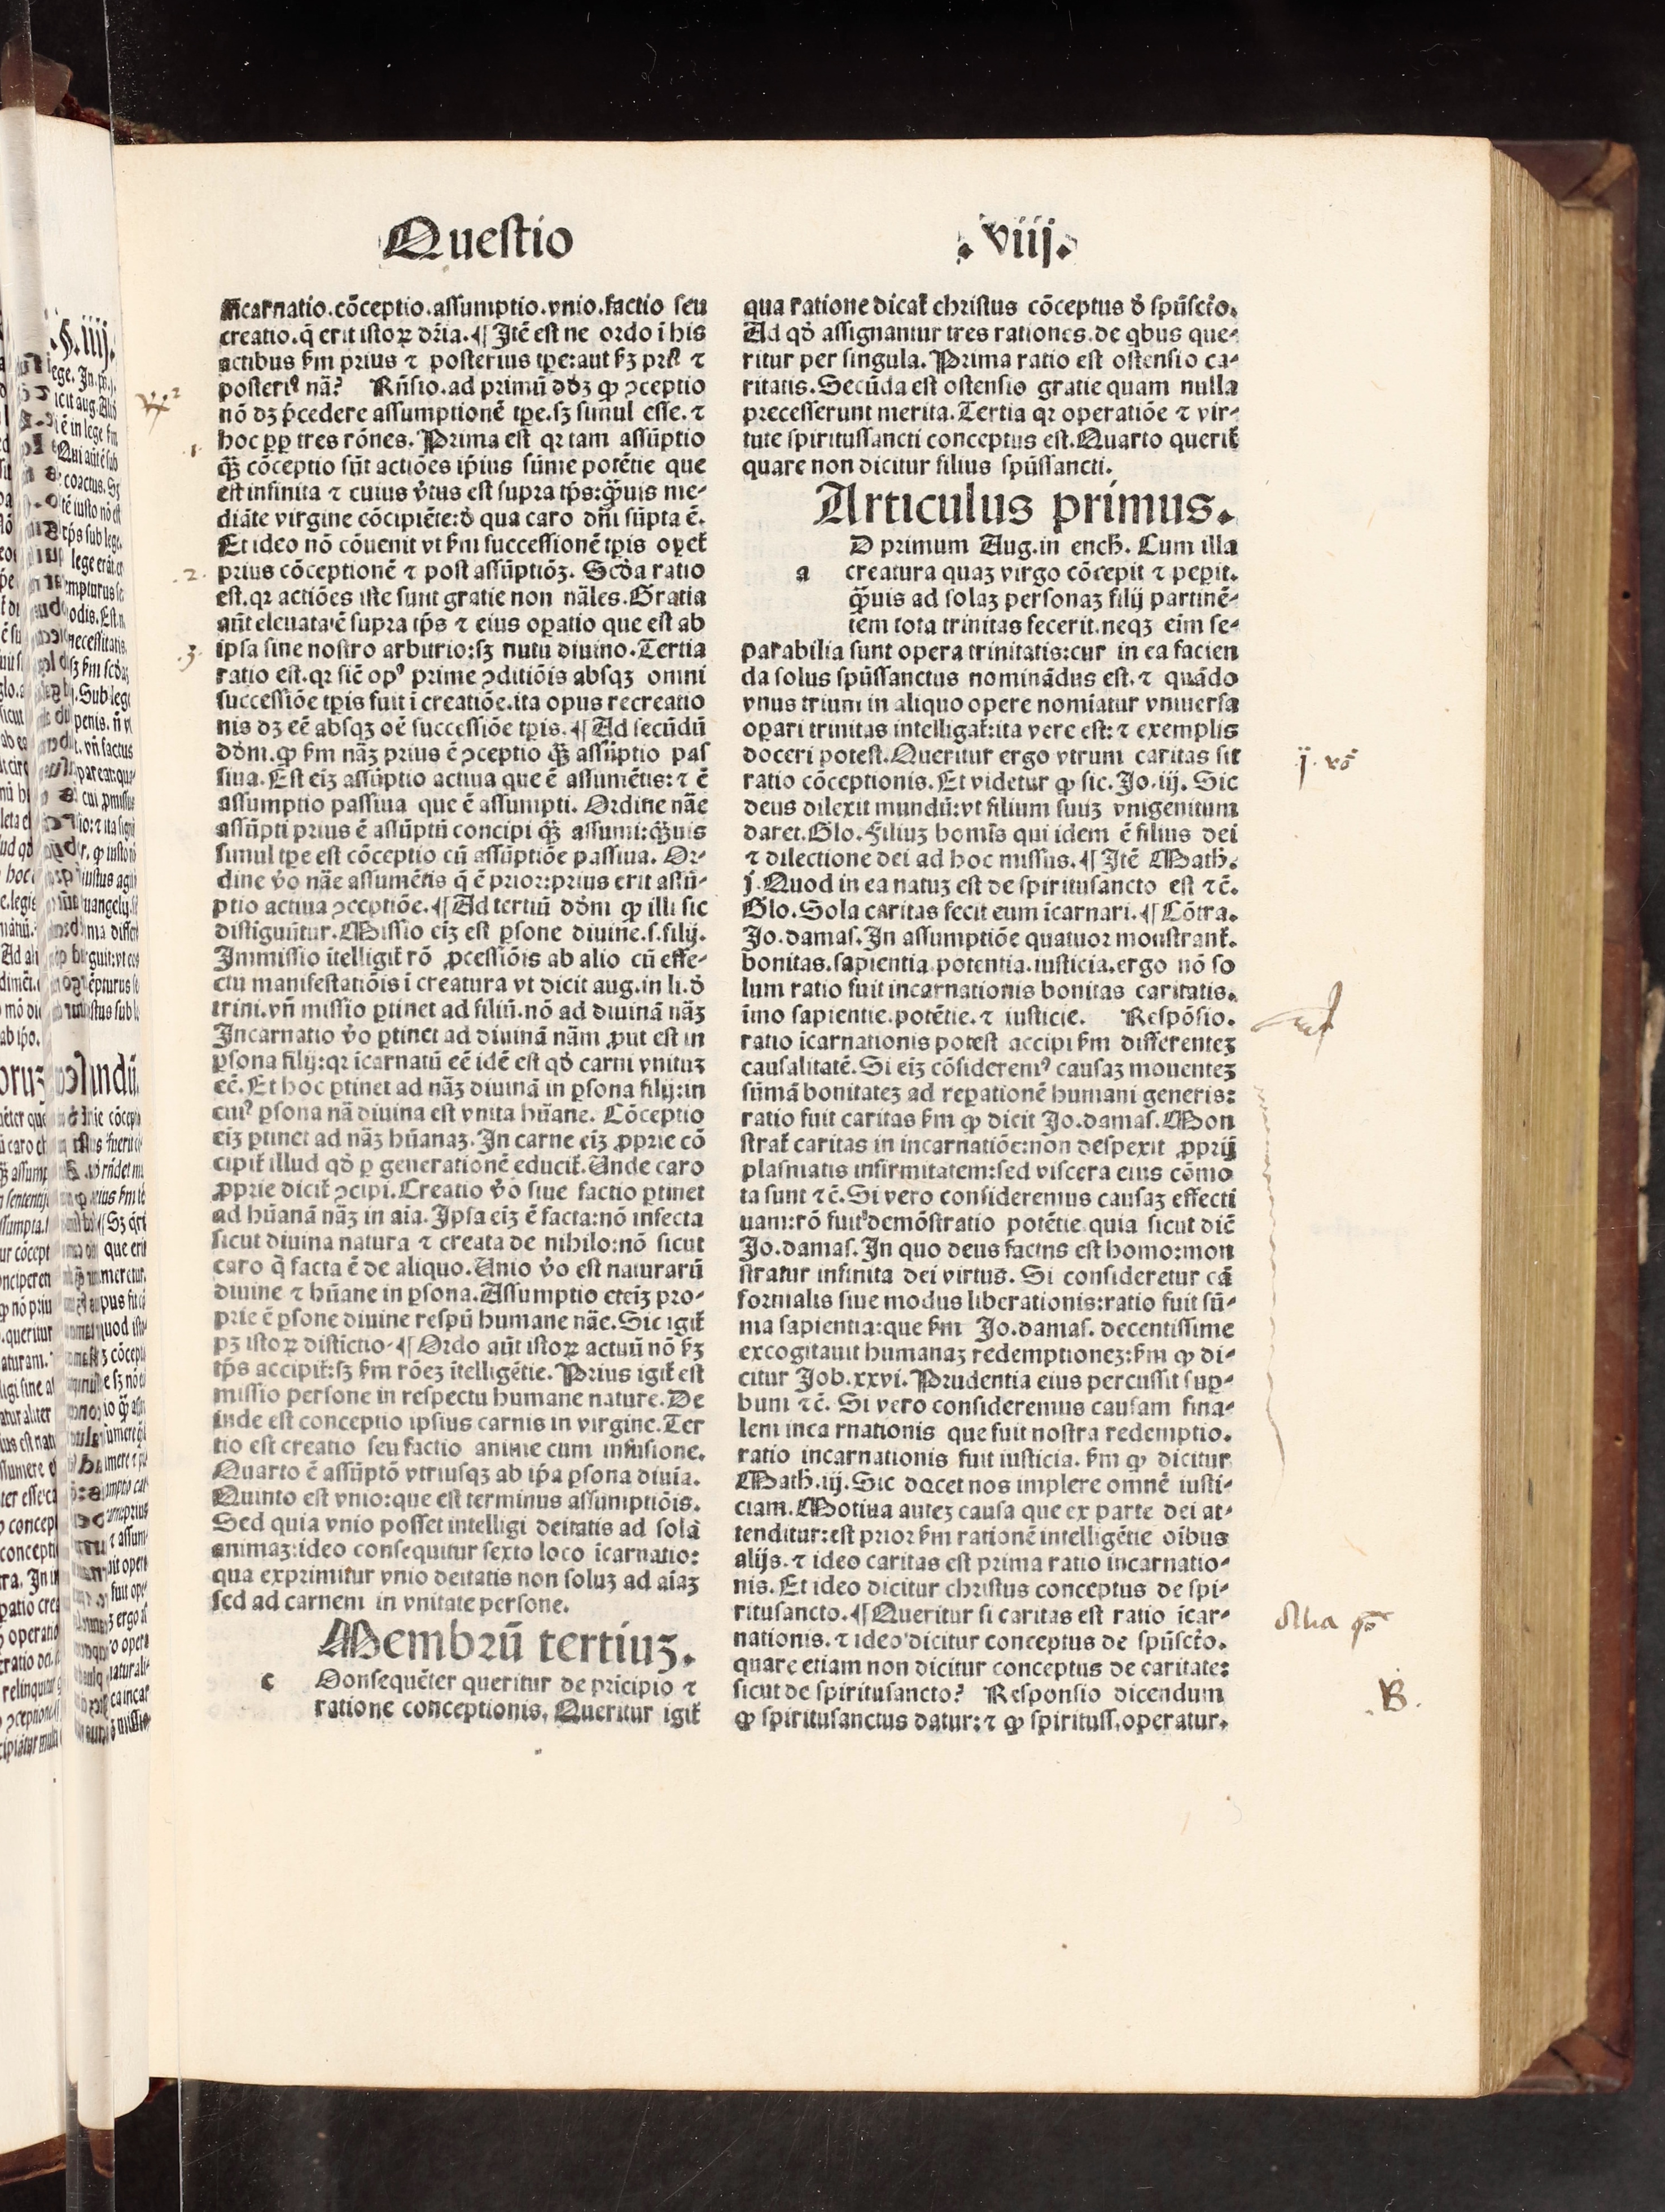 Questio
.viij.
incarnatio.cōceptio.assumptio.vnio.factio seu
creatio.q̄ erit istoꝝ dr̄ia.¶ Itē est ne ordo ī his
actibus ẜm prius ⁊ posterius tp̄e:aut ẜꝫ priꝰ ⁊
posteriꝰ nā? Rn̄sio.ad primū ddꝫ ꝙ ꝯceptio
nō dꝫ p̄cedere assumptionē tp̄e.sꝫ simul esse.⁊
hoc ꝓp tres rōnes. Prima est qr tam assūptio
q̄ꝫ cōceptio sūt actiōes ip̄ius sūme potētie que
est infinita ⁊ cuius v̓tus est supra tp̄s:q̄ꝫuis me-
diāte virgine cōcipiēte:d̓ qua caro dn̄i sūpta ē.
Et ideo nō cōuenit vt ẜm successionē tp̄is oꝑet᷑
prius cōceptionē ⁊ post assūptiōꝫ. Scd̓a ratio
est.qr actiōes iste sunt gratie non nāles.Gratia
aūt eleuata ē supra tp̄s ⁊ eius oꝑatio que est ab
ipsa sine nostro arburio:sꝫ nutu diuino.Tertia
ratio est.qr sic̄ opꝰ prime ꝯditiōis absqꝫ omni
successiōe tp̄is fuit ī creatiōe.ita opus recreatio
nis dꝫ eē absqꝫ oē successiōe tp̄is.¶ Ad secūdū
dd̓m.ꝙ ẜm nāꝫ prius ē ꝯceptio q̄ꝫ assūptio pas
siua. Est eiꝫ assūptio actiua que ē assumētis:⁊ ē
assumptio passiua que ē assumpti. Ordine nāe
assūpti prius ē assūptū concipi q̄ꝫ assumi:q̄ꝫuis
simul tp̄e est cōceptio cū assūptiōe passiua. Or-
dine v̓o nāe assumētis q̄ ē prior:prius erit assū-
ptio actiua ꝯceptiōe.¶ Ad tertiū dd̓m ꝙ illi sic
distiguūtur.Missio eiꝫ est ꝑsone diuine.s.filij.
In missio ītelligit᷑ rō ꝓcessiōis ab alio cū effe-
ctu manifestatiōis ī creatura vt dicit aug.in li.d̓
trini.vn̄ missio ꝑtinet ad filiū.nō ad diuinā nāꝫ
Incarnatio v̓o ꝑtinet ad diuinā nām ꝓut est in
ꝑsona filij:qr īcarnatū eē idē est qd̓ carni vnituꝫ
eē. Et hoc ꝑtinet ad nāꝫ diuinā in ꝑsona filij:in
cuiꝰ ꝑsona nā diuina est vnita hūane. Cōceptio
eiꝫ ꝑtinet ad nāꝫ hūanaꝫ.In carne eiꝫ ꝓprie cō
cipit᷑ illud qd̓ ꝑ generationē educit᷑.Unde caro
ꝓprie dicit᷑ ꝯcipi.Creatio v̓o siue factio ꝑtinet
ad hūanā nāꝫ in aīa. Ipsa eiꝫ ē facta:nō infecta
sicut diuina natura ⁊ creata de nihilo:nō sicut
caro q̄ facta ē de aliquo.Unio v̓o est naturarū
diuine ⁊ hūane in ꝑsona.Assumptio eteiꝫ pro-
prie ē ꝑsone diuine respū humane nāe.Sic igit᷑
pꝫ istoꝝ distictio.¶ Ordo aūt istoꝝ actuū nō ẜꝫ
tp̄s accipit᷑:sꝫ ẜm rōeꝫ ītelligētie.Prius igit᷑ est
missio persone in respectu humane nature.De
inde est conceptio ipsius carnis in virgine.Ter
tio est creatio seu factio anime cum infusione.
Quarto ē assūptō vtriusqꝫ ab ip̄a ꝑsona diuīa.
Quinto est vnio:que est terminus assumptiōis.
Sed quia vnio posset intelligi deitatis ad solā
animaꝫ:ideo consequitur sexto loco īcarnatio:
qua exprimitur vnio deitatis non soluꝫ ad aīaꝫ
sed ad carnem in vnitate persone.
Membrū tertiuꝫ.
c Consequēter queritur de pricipio ⁊
ratione conceptionis. Queritur igit᷑
qua ratione dicat᷑ christus cōceptus d̓ spūsctō.
Ad qd̓ assignantur tres rationes.de qbus que-
ritur per singula. Prima ratio est ostensio ca-
ritatis.Secūda est ostensio gratie quam nulla
precesserunt merita.Tertia qr operatiōe ⁊ vir-
tute spiritussancti conceptus est.Quarto querit᷑
quare non dicitur filius spūssancti.
Articulus primus.
a D primum Aug.in ench̄. Cum illa
creatura quaꝫ virgo cōcepit ⁊ peꝑit.
q̄ꝫuis ad solaꝫ personaꝫ filij partinē-
tem tota trinitas fecerit.neqꝫ eim se-
parabilia sunt opera trinitatis:cur in ea facien
da solus spūssanctus nominādus est.⁊ quādo
vnus trium in aliquo opere nomiatur vniuersa
opari trinitas intelligat᷑:ita vere est:⁊ exemplis
doceri potest.Queritur ergo vtrum caritas sit
ratio cōceptionis.Et videtur ꝙ sic.Jo.iij. Sic
deus dilexit mundū:vt filium suuꝫ vnigenitum
daret.Glo.Filiuꝫ homīs qui idem ē filius dei
⁊ dilectione dei ad hoc missus.¶ Itē Math.
j.Quod in ea natuꝫ est de spiritusancto est ⁊c̄.
Glo.Sola caritas fecit eum īcarnari.¶ Cōtra.
Jo.damas.In assumptiōe quatuor monstrant᷑.
bonitas.sapientia.potentia.iusticia.ergo nō so
lum ratio fuit incarnationis bonitas caritatis.
imo sapientie.potētie.⁊ iusticie. Respōsio.
ratio īcarnationis potest accipi ẜm differenteꝫ
causalitatē.Si eiꝫ cōsideremꝰ causaꝫ mouenteꝫ
sūmā bonitateꝫ ad reꝑationē humani generis:
ratio fuit caritas ẜm ꝙ dicit Jo.damas.Mon
strat᷑ caritas in incarnatiōe:non despexit ꝓprij
plasmatis infirmitatem:sed viscera eius cōmo
ta sunt ⁊c̄.Si vero consideremus causaꝫ effecti
uam:rō fuit demōstratio potētie quia sicut dic̄
Jo.damas.In quo deus factus est homo:mon
stratur infinita dei virtus. Si consideretur cā
formalis siue modus liberationis:ratio fuit sū-
ma sapientia:que ẜm Jo.damas.decentissime
excogitauit humanaꝫ redemptioneꝫ:ẜm ꝙ di-
citur Job.xxvi.Prudentia eius percussit suꝑ-
bum ⁊c̄. Si vero consideremus causam fina-
lem inca rnationis que fuit nostra redemptio.
ratio incarnationis fuit iusticia.ẜm ꝙ dicitur
Math.iij.Sic docet nos implere omnē iusti-
ciam.Motiua auteꝫ causa que ex parte dei at-
tenditur:est prior ẜm rationē intelligētie oībus
alijs.⁊ ideo caritas est prima ratio incarnatio-
nis. Et ideo dicitur christus conceptus de spi-
ritusancto.¶ Queritur si caritas est ratio īcar-
nationis.⁊ ideo dicitur conceptus de spūsctō.
quare etiam non dicitur conceptus de caritate:
sicut de spiritusancto? Responsio dicendum
ꝙ spiritusanctus datur:⁊ ꝙ spirituss.operatur.
.1.
.2.
.3.
B.